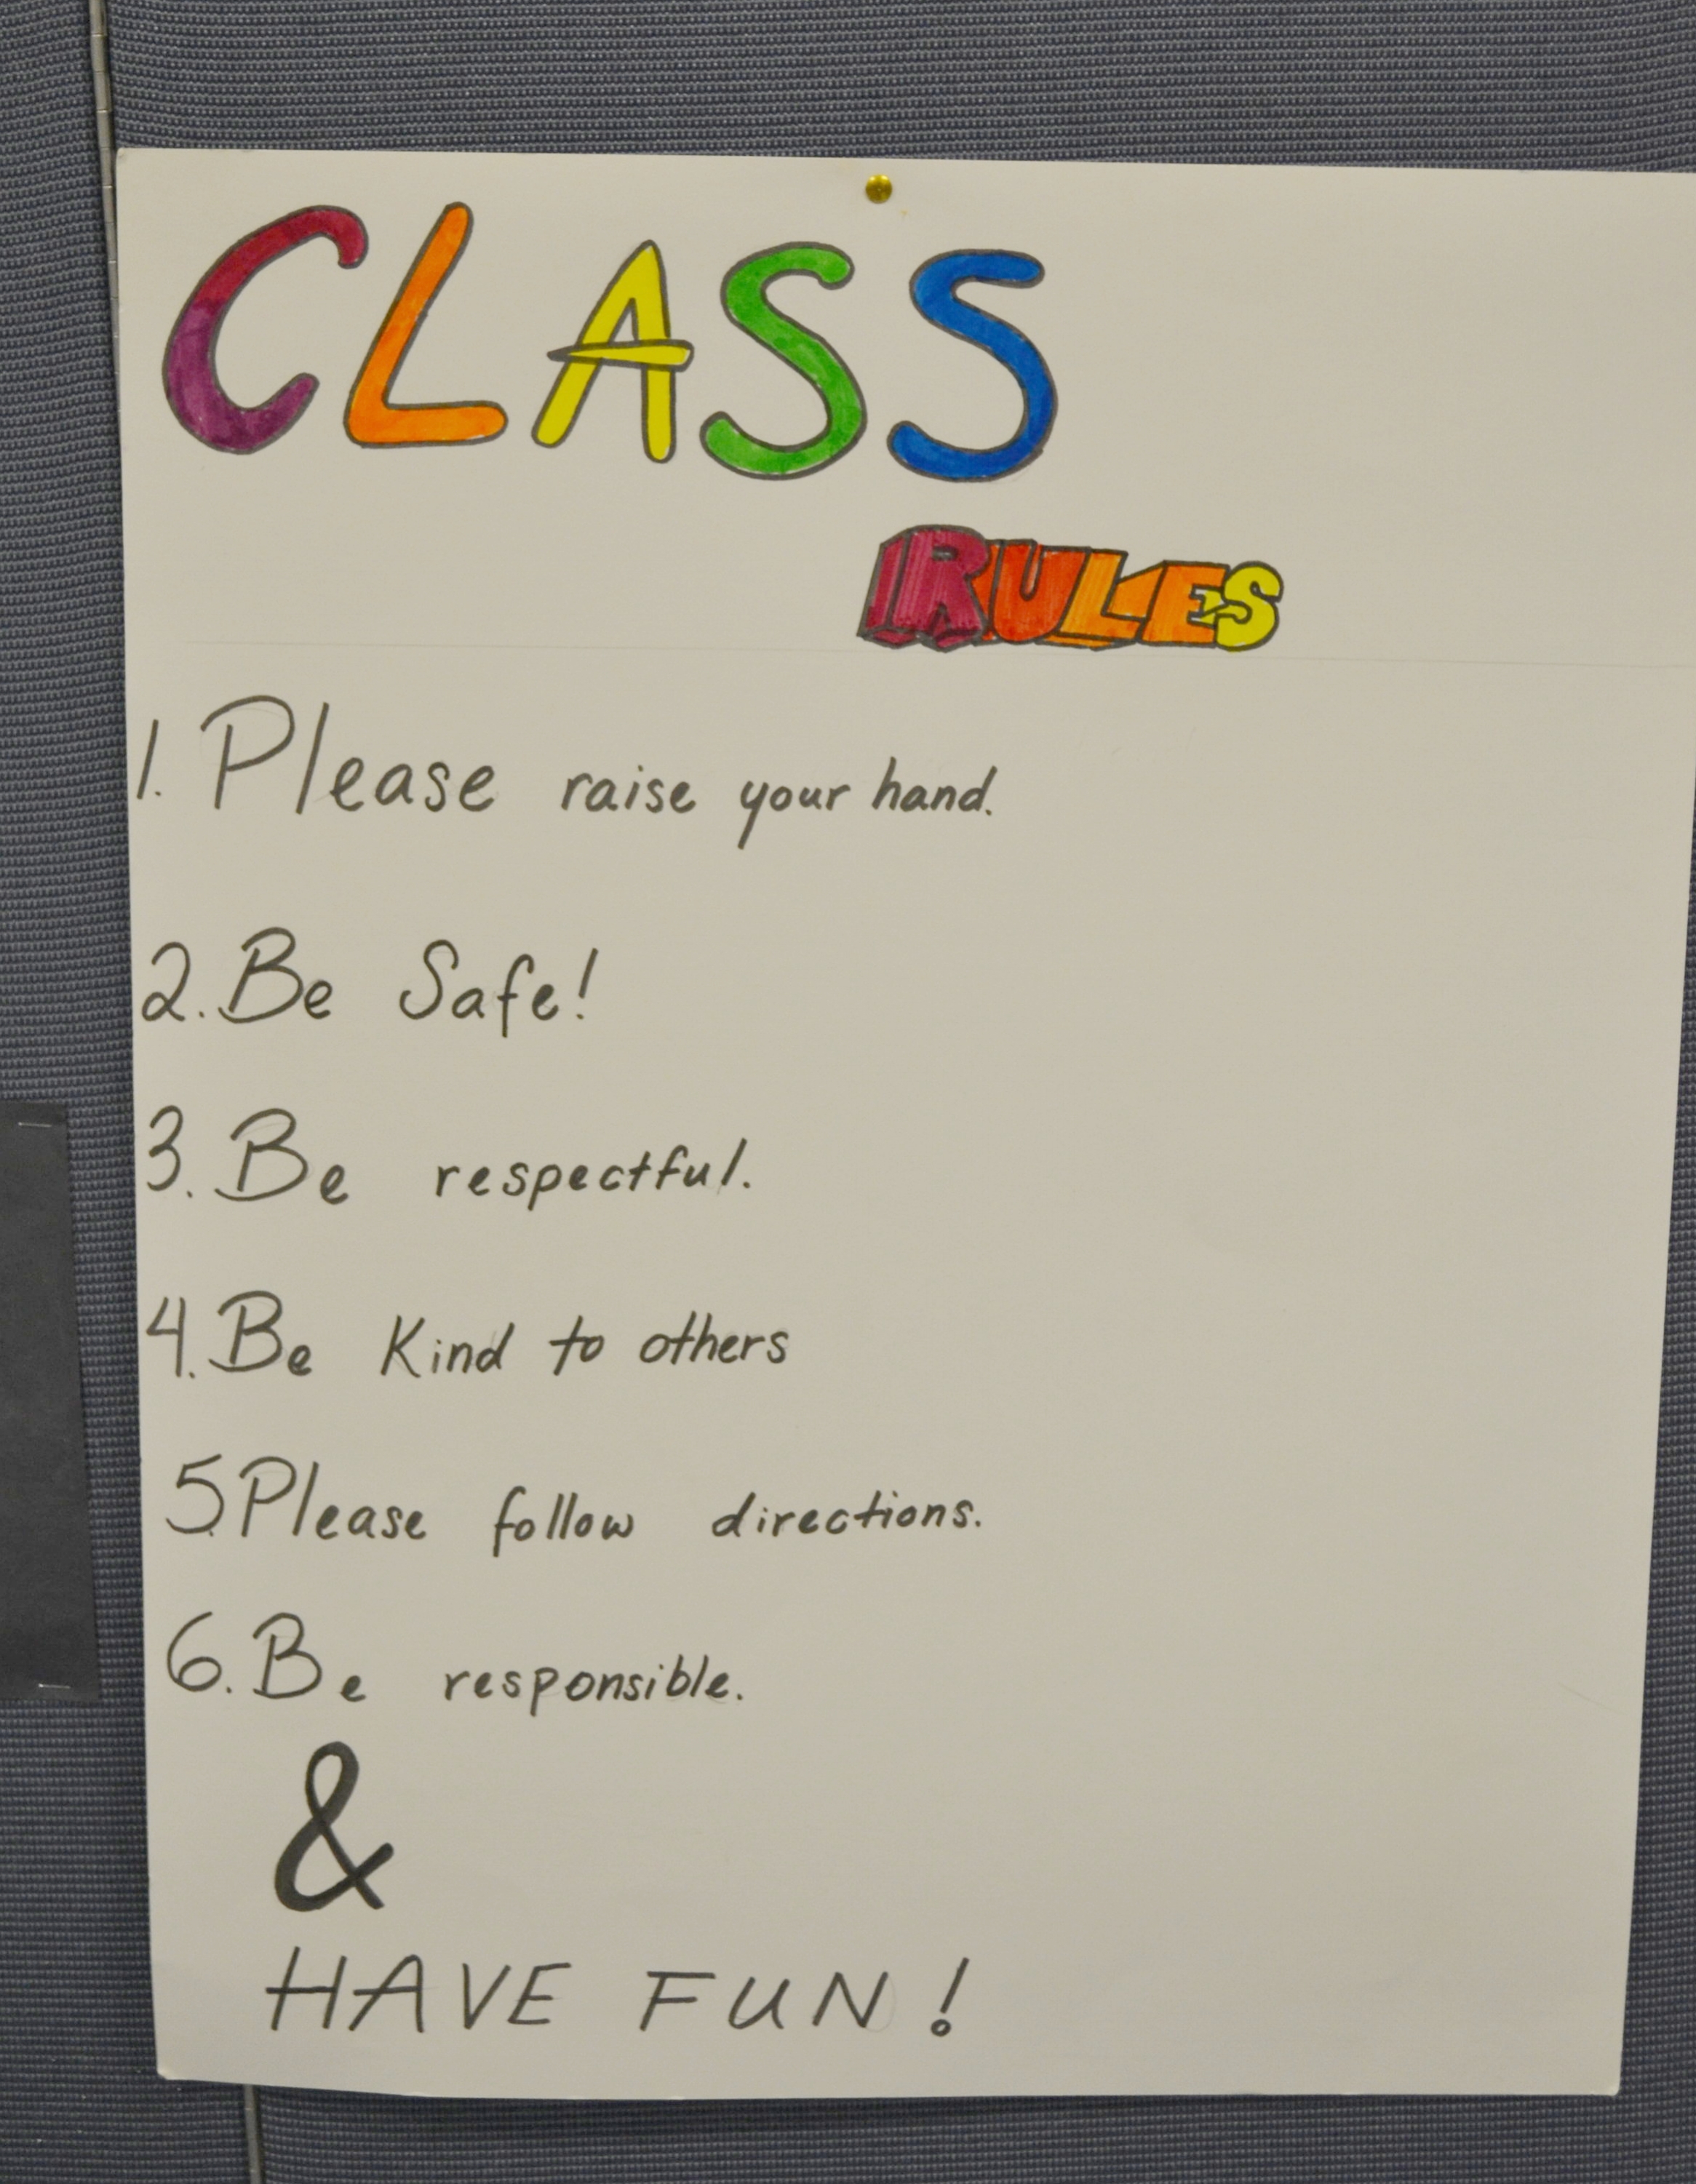 CLASS
RULES
1. Please raise your hand.
2. Be Safe!
3. Be respectful.
4. Be Kind to others
5. Please follow directions.
6. Be responsible.
&
HAVE FUN!